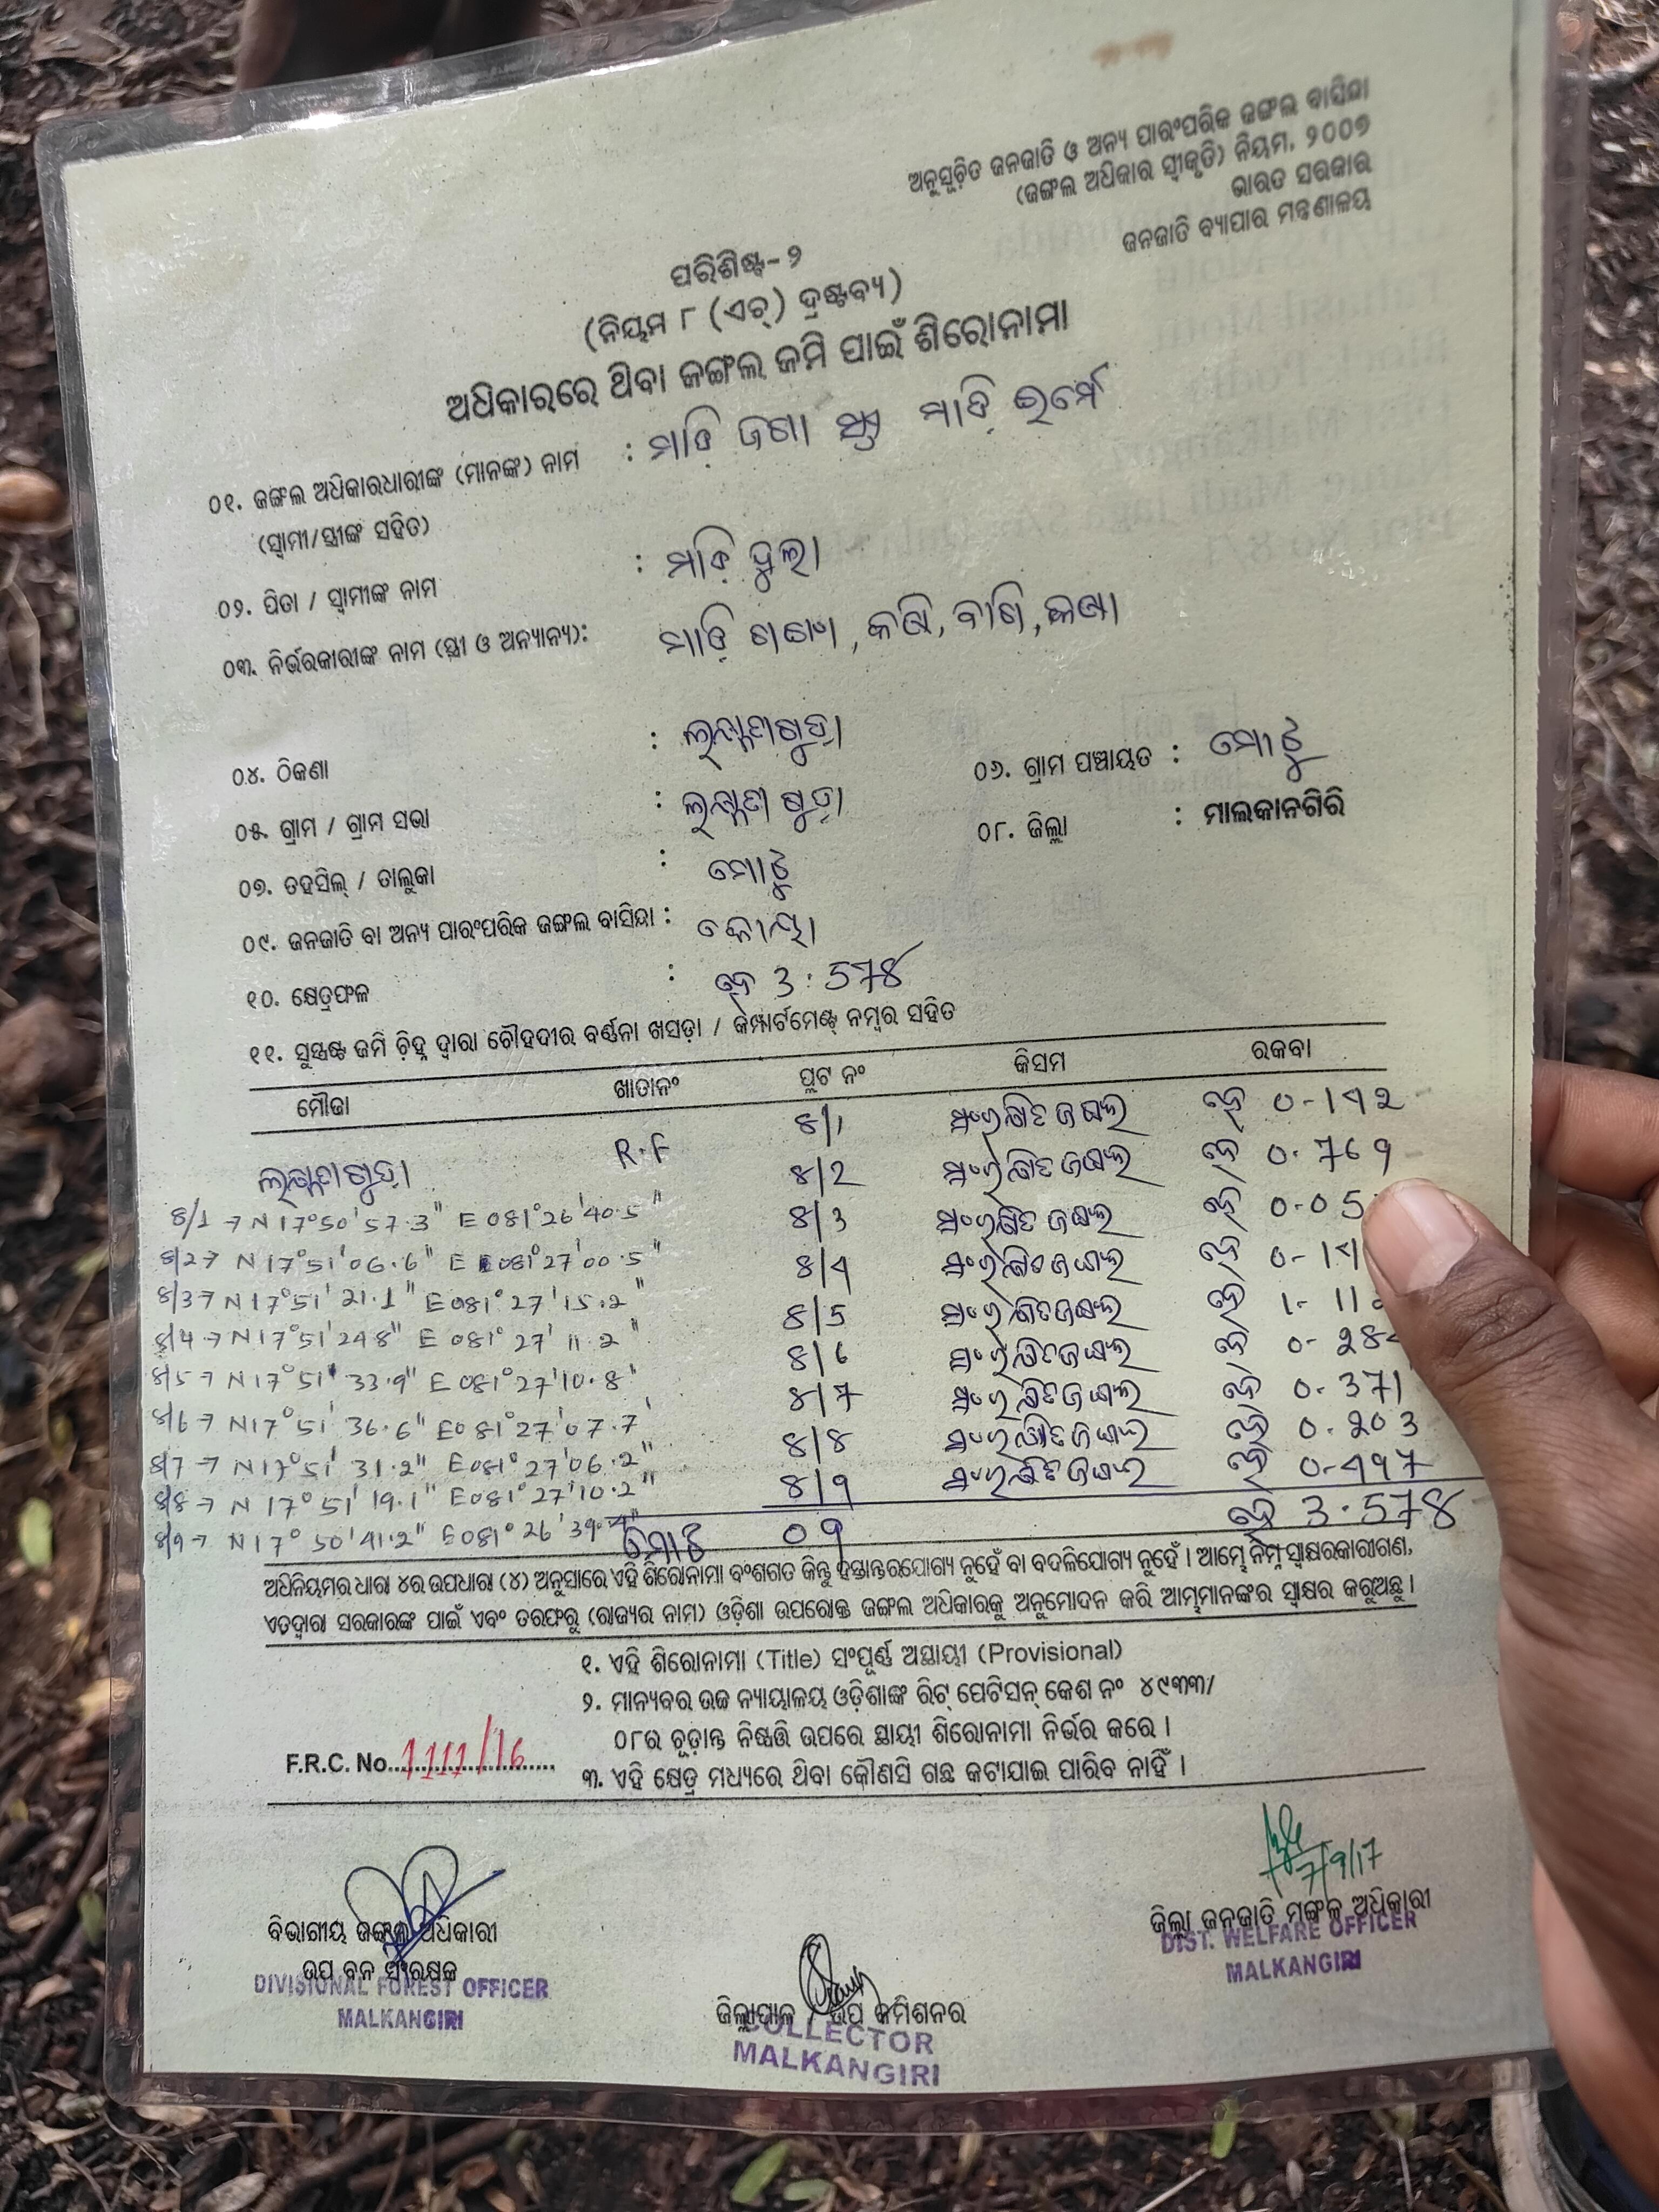 ଅନୁସୂଚିତ ଜନଜାତି ଓ ଅନ୍ୟ ପାରଂପରିକ ଜଙ୍ଗଲ ବାସିନ୍ଦା
(ଜଙ୍ଗଲ ଅଧିକାର ସ୍ୱୀକୃତି) ନିୟମ, ୨୦୦୭
ଭାରତ ସରକାର
ଜନଜାତି ବ୍ୟାପାର ମନ୍ତ୍ରଣାଳୟ
ପରିଶିଷ୍ଟ-୨
(ନିୟମ ୮ (ଏଚ୍) ଦ୍ରଷ୍ଟବ୍ୟ)
ଅଧିକାରରେ ଥିବା ଜଙ୍ଗଲ ଜମି ପାଇଁ ଶିରୋନାମା
୦୧. ଜଙ୍ଗଲ ଅଧିକାରଧାରୀଙ୍କ (ମାନଙ୍କ) ନାମ : ମାଡ଼ି ଜଗା ମାଡ଼ି ଇର୍ମେ
(ସ୍ୱାମୀ/ସ୍ତ୍ରୀଙ୍କ ସହିତ)
୦୨. ପିତା / ସ୍ୱାମୀଙ୍କ ନାମ : ମାଡ଼ି ଦୁଲା
୦୩. ନିର୍ଭରକାରୀଙ୍କ ନାମ (ସ୍ତ୍ରୀ ଓ ଅନ୍ୟାନ୍ୟ): ମାଡ଼ି
୦୪. ଠିକଣା : ଲକ୍ଷ୍ମଣଗୁଡ଼ା
୦୬. ଗ୍ରାମ ପଞ୍ଚାୟତ : ମୋଟୁ
୦୫. ଗ୍ରାମ / ଗ୍ରାମ ସଭା : ଲକ୍ଷ୍ମଣଗୁଡ଼ା
୦୮. ଜିଲ୍ଲା : ମାଲକାନଗିରି
୦୭. ତହସିଲ୍ / ତାଲୁକା : ମୋଟୁ
୦୯. ଜନଜାତି ବା ଅନ୍ୟ ପାରଂପରିକ ଜଙ୍ଗଲ ବାସିନ୍ଦା : କୋୟା
୧୦. କ୍ଷେତ୍ରଫଳ : ହେ 3.578
୧୧. ସୁସ୍ପଷ୍ଟ ଜମି ଚିହ୍ନ ଦ୍ୱାରା ଚୌହଦୀର ବର୍ଣ୍ଣନା ଖସଡ଼ା / କମ୍ପାର୍ଟମେଣ୍ଟ୍ ନମ୍ବର ସହିତ
ମୌଜା ଖାତାନଂ ପ୍ଲଟ ନଂ କିସମ ରକବା
ଲକ୍ଷ୍ମଣଗୁଡ଼ା R.F 8/1 ସଂରକ୍ଷିତ ଜଙ୍ଗଲ ହେ 0-142
8/1 → N 17°50'57.3" E 081°26'40.5" 8/2 ସଂରକ୍ଷିତ ଜଙ୍ଗଲ ହେ 0.769
8/2 → N 17°51'06.6" E 081°27'00.5" 8/3 ସଂରକ୍ଷିତ ଜଙ୍ଗଲ ହେ 0-05
8/3 → N 17°51'21.1" E 081°27'15.2" 8/4 ସଂରକ୍ଷିତ ଜଙ୍ଗଲ ହେ 0-14
8/4 → N 17°51'24 8" E 081°27'11.2" 8/5 ସଂରକ୍ଷିତ ଜଙ୍ଗଲ ହେ 1-11
8/5 → N 17°51'33.9" E 081°27'10.8" 8/6 ସଂରକ୍ଷିତ ଜଙ୍ଗଲ ହେ 0-28
8/6 → N 17°51'36.6" E 081°27'07.7' 8/7 ସଂରକ୍ଷିତ ଜଙ୍ଗଲ ହେ 0.371
8/7 → N 17°51'31.2" E 081°27'06.2" 8/8 ସଂରକ୍ଷିତ ଜଙ୍ଗଲ ହେ 0.203
8/8 → N 17°51'19.1" E 081°27'10.2" 8/9 ସଂରକ୍ଷିତ ଜଙ୍ଗଲ ହେ 0-497
8/9 → N 17°50'41.2" E 081°26'39.4" ମୋଟ 09 ହେ 3.578
ଅଧିନିୟମର ଧାରା ୪ର ଉପଧାରା (୪) ଅନୁସାରେ ଏହି ଶିରୋନାମା ବଂଶଗତ କିନ୍ତୁ ହସ୍ତାନ୍ତରଯୋଗ୍ୟ ନୁହେଁ ବା ବଦଳିଯୋଗ୍ୟ ନୁହେଁ । ଆମ୍ଭେ ନିମ୍ନ ସ୍ୱାକ୍ଷରକାରୀଗଣ,
ଏତଦ୍ଦ୍ୱାରା ସରକାରଙ୍କ ପାଇଁ ଏବଂ ତରଫରୁ (ରାଜ୍ୟର ନାମ) ଓଡ଼ିଶା ଉପରୋକ୍ତ ଜଙ୍ଗଲ ଅଧିକାରକୁ ଅନୁମୋଦନ କରି ଆମ୍ଭମାନଙ୍କର ସ୍ୱାକ୍ଷର କରୁଅଛୁ ।
୧. ଏହି ଶିରୋନାମା (Title) ସଂପୂର୍ଣ୍ଣ ଅସ୍ଥାୟୀ (Provisional)
୨. ମାନ୍ୟବର ଉଚ୍ଚ ନ୍ୟାୟାଳୟ ଓଡ଼ିଶାଙ୍କ ରିଟ୍ ପେଟିସନ୍ କେଶ ନଂ ୪୯୩୩/
୦୮ର ଚୂଡ଼ାନ୍ତ ନିଷ୍ପତ୍ତି ଉପରେ ସ୍ଥାୟୀ ଶିରୋନାମା ନିର୍ଭର କରେ ।
F.R.C. No. 1111/16
୩. ଏହି କ୍ଷେତ୍ର ମଧ୍ୟରେ ଥିବା କୌଣସି ଗଛ କଟାଯାଇ ପାରିବ ନାହିଁ ।
7/9/17
ବିଭାଗୀୟ ଜଙ୍ଗଲ ଅଧିକାରୀ
ଉପ ବନ ସଂରକ୍ଷକ
DIVISIONAL FOREST OFFICER
MALKANGIRI
ଜିଲ୍ଲାପାଳ / ଉପ କମିଶନର
COLLECTOR
MALKANGIRI
ଜିଲ୍ଲା ଜନଜାତି ମଙ୍ଗଳ ଅଧିକାରୀ
DIST. WELFARE OFFICER
MALKANGIRI